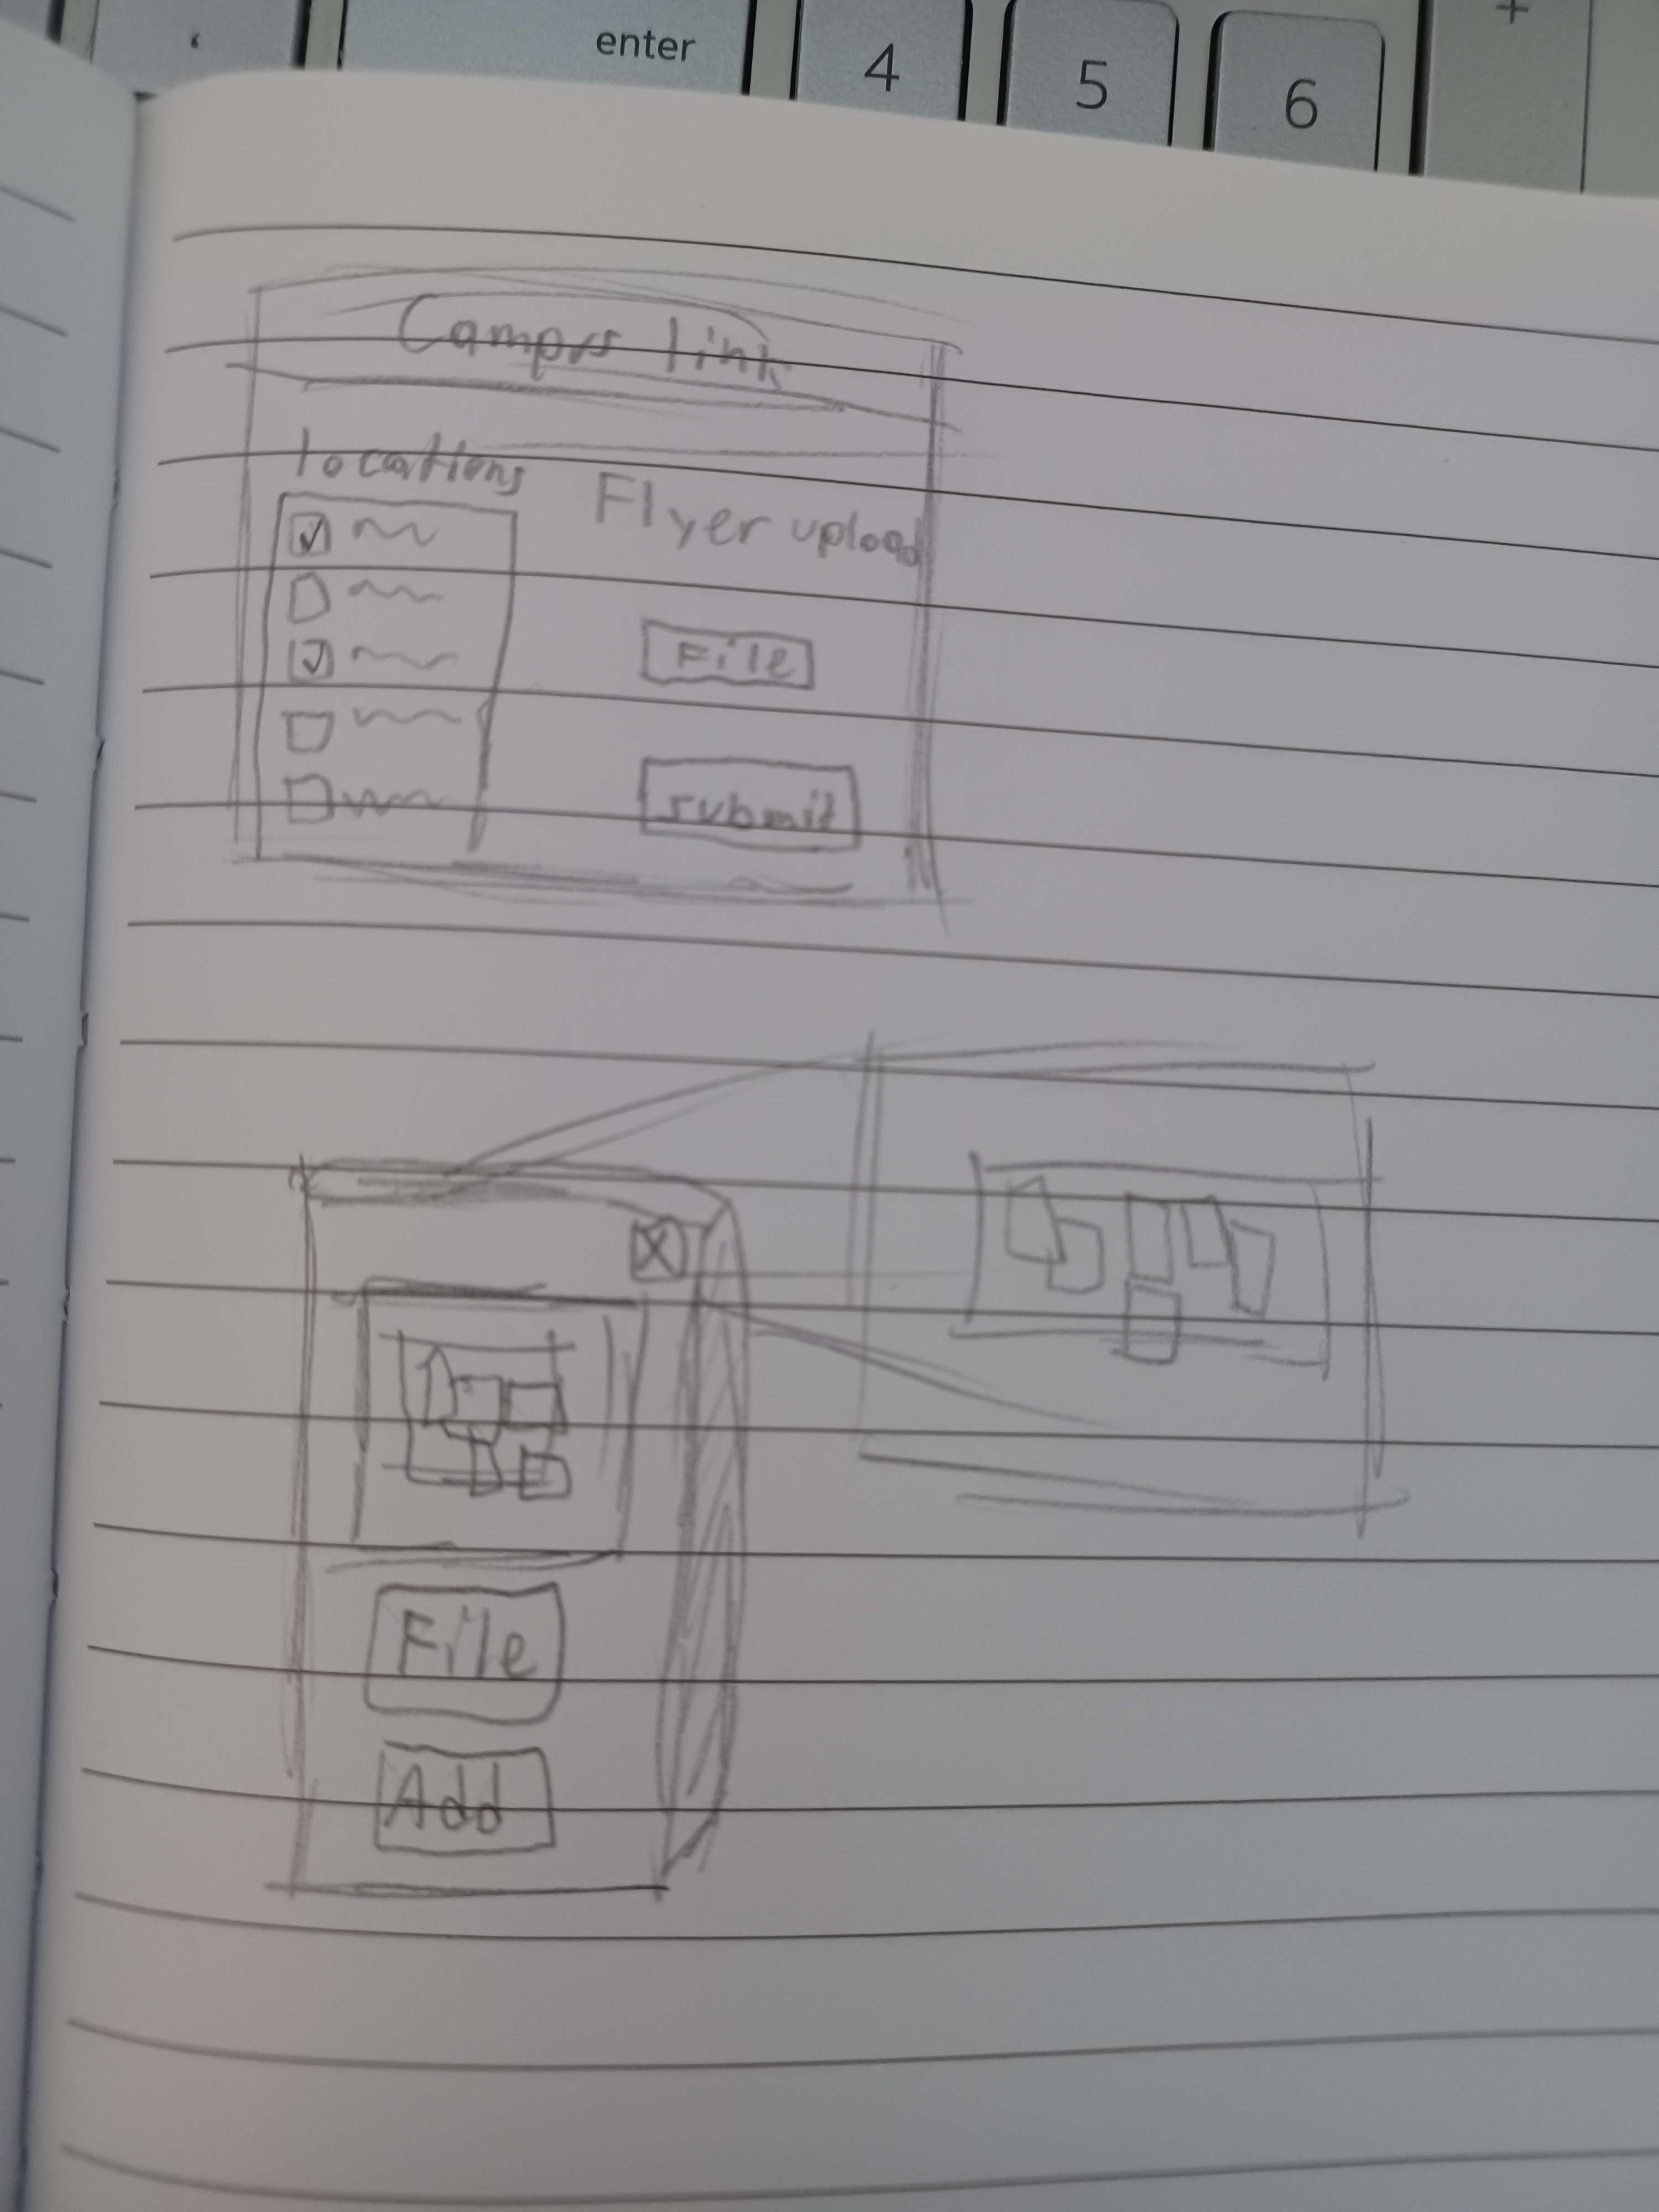 enter
4
5
6
+
Campus link
locations
Flyer upload
File
submit
X
File
Add